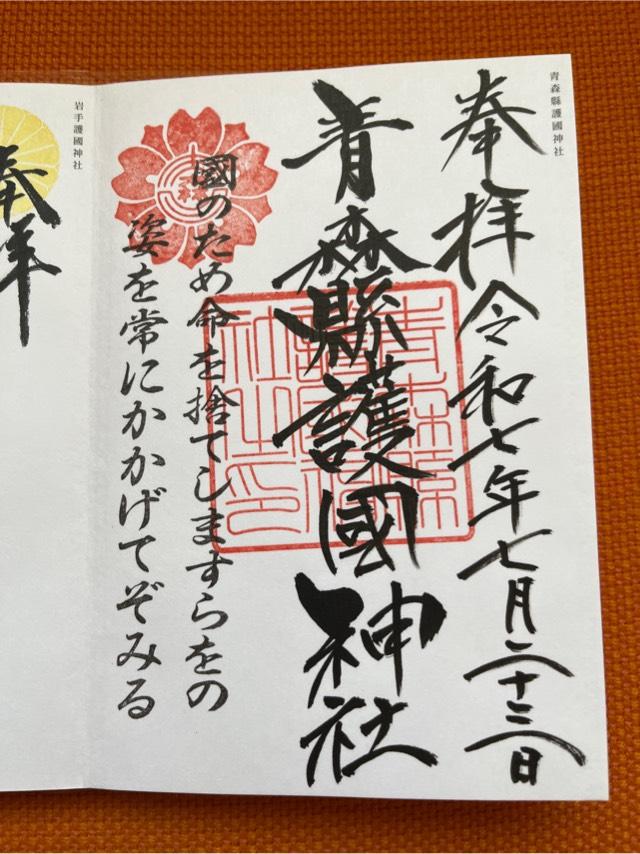 青森縣護國神社
奉拝 令和七年七月二十三日
青森縣護國神社
青森縣
護國神
社之印
國のため命を捨てしますらをの
姿を常にかかげてぞみる
岩手護國神社
奉拝